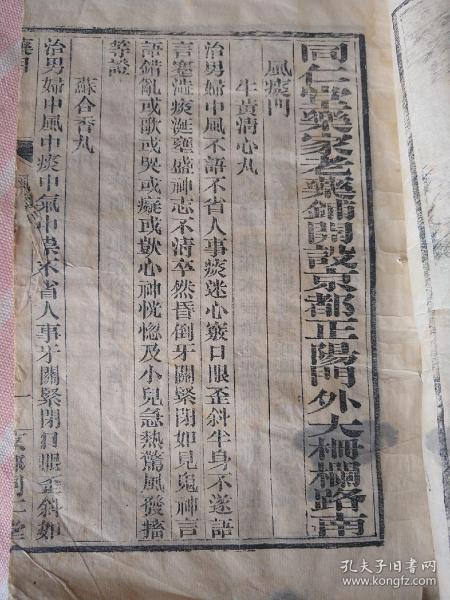 同仁堂樂家老藥鋪開設京都正陽門外大柵欄路南
風痰門
牛黃清心丸
治男婦中風不語不省人事痰迷心竅口眼歪斜半身不遂語
言蹇澁痰涎壅盛神志不清卒然昏倒牙關緊閉如見鬼神言
語錯亂或歌或哭或癡或歎心神恍惚及小兒急熱驚風發搐
等證
蘇合香丸
治男婦中風中痰中氣中祟不省人事牙關緊閉口眼歪斜如
風
一
京都同仁堂
孔夫子旧书网
www.kongfz.com